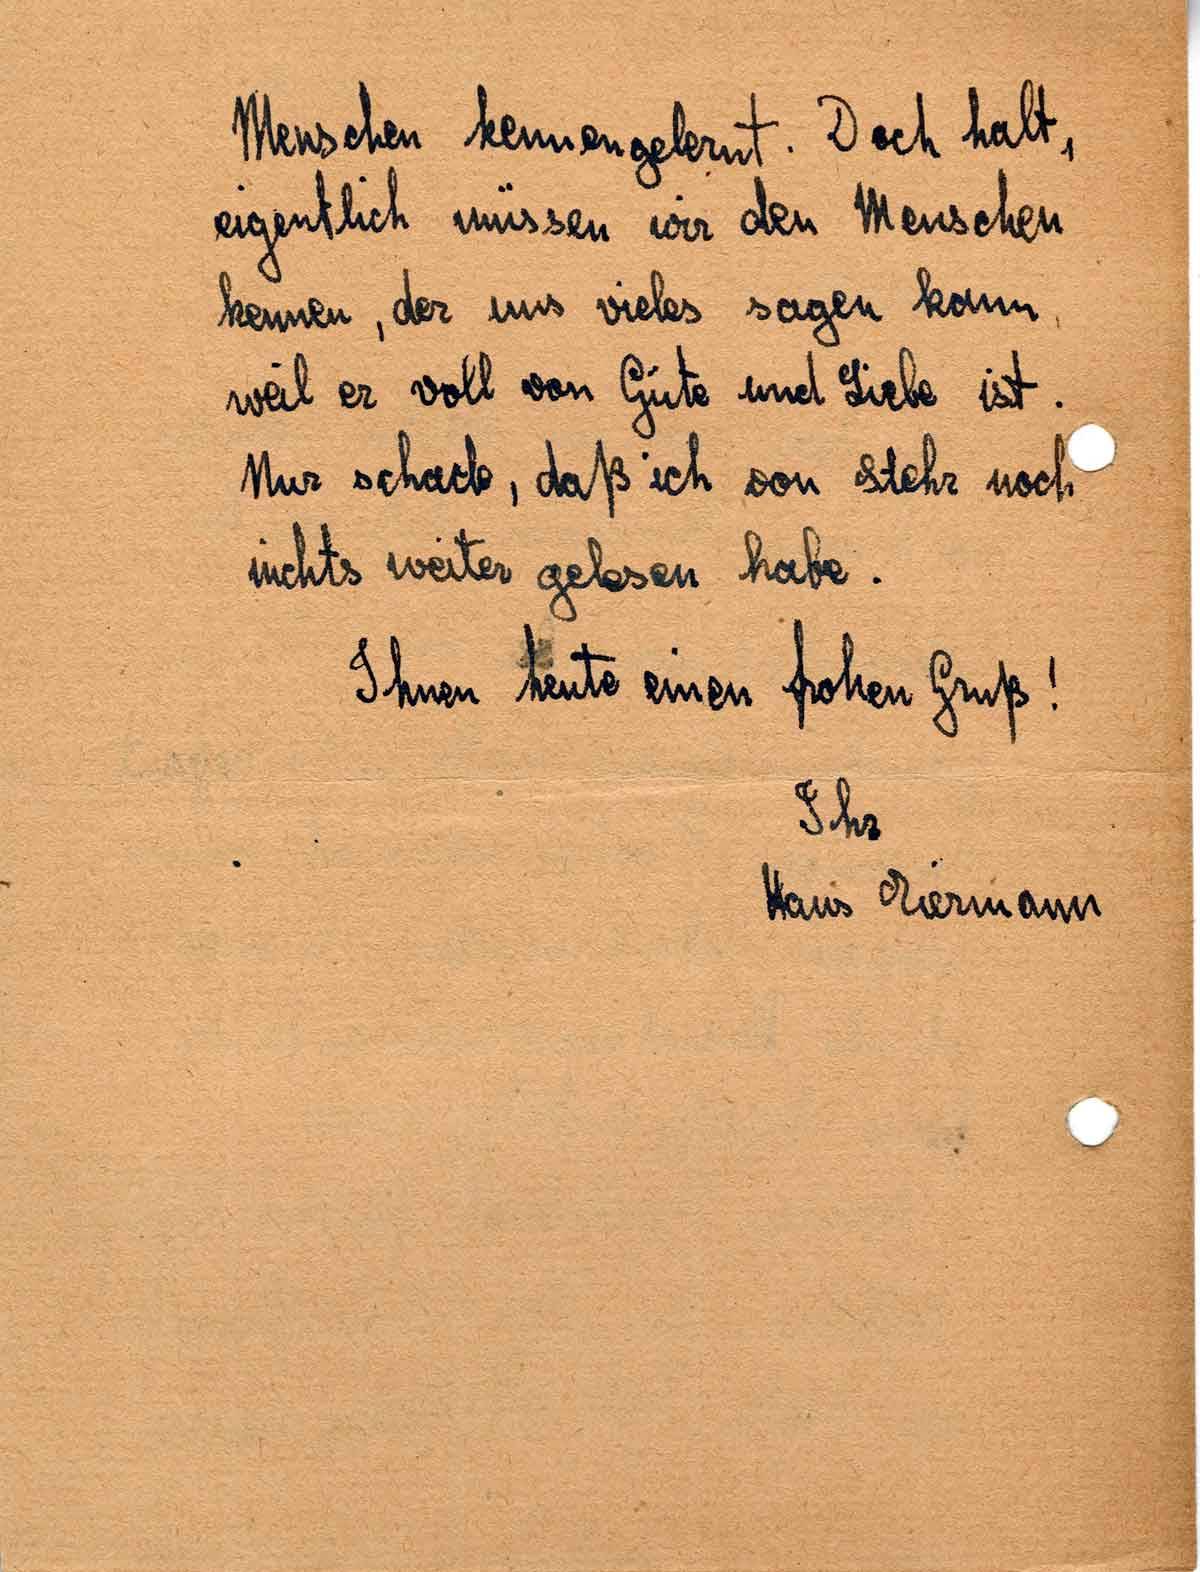 Menschen kennengelernt. Doch halt,
eigentlich müssen wir den Menschen
kennen, der uns vieles sagen kann,
weil er voll von Güte und Liebe ist.
Nur schade, daß ich von Stehr noch
nichts weiter gelesen habe.
Ihnen heute einen frohen Gruß!
Ihr
Hans